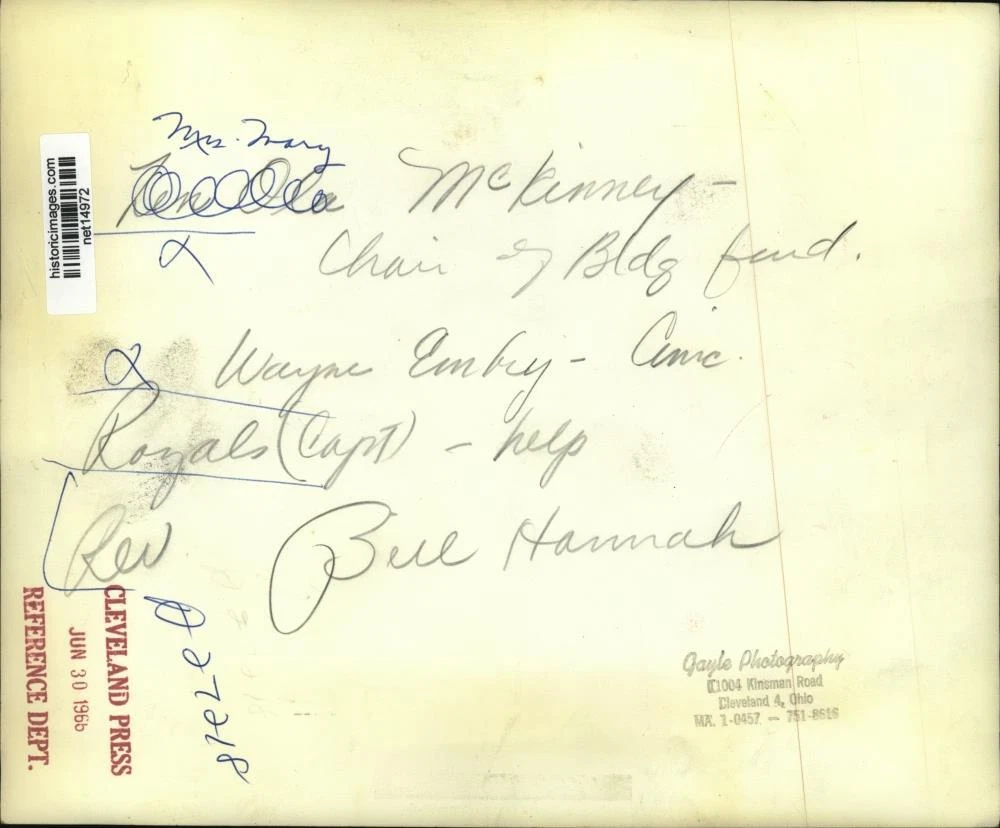 Mrs. Mary
McKinney -
Chair of Bldg fund.
Wayne Embry - Cinc.
Royals (Capt) - help
Rev Bill Hannah
historicimages.com
net14972
CLEVELAND PRESS
JUN 30 1966
REFERENCE DEPT.
Gayle Photography
11004 Kinsman Road
Cleveland 4, Ohio
MA. 1-0457 — 751-8616